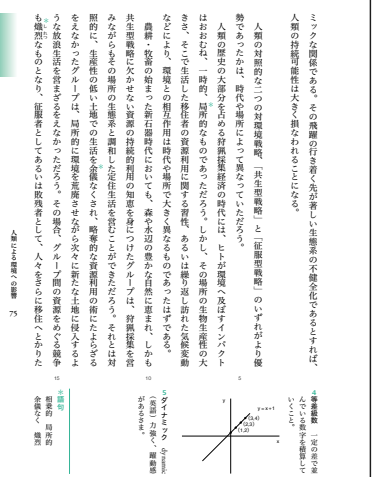 ミックな関係である。その飛躍の行き着く先が著しい生態系の不健全化であるとすれば、
人類の持続可能性は大きく損なわれることになる。
人類の対照的な二つの対環境戦略、「共生型戦略」と「征服型戦略」のいずれがより優
勢であったかは、時代や場所によって異なっていただろう。
人類の歴史の大部分を占める狩猟採集経済の時代には、ヒトが環境へ及ぼすインパクト
はおおむね、一時的、局所的なものであっただろう。しかし、その場所の生物生産性の大
きさ、そこで生活した移住者の資源利用に関する習性、あるいは繰り返し訪れた気候変動
などにより、環境との相互作用は時代や場所で大きく異なるものであったはずである。
農耕・牧畜の始まった新石器時代においても、森や水辺の豊かな自然に恵まれ、しかも
共生型戦略に欠かせない資源の持続的利用の知恵を身につけたグループは、狩猟採集を営
みながらもその場所の生態系と調和した定住生活を営むことができただろう。それとは対
照的に、生産性の低い土地での生活を余儀なくされ、略奪的な資源利用の術にたよらざる
をえなかったグループは、局所的に環境を荒廃させながら次々に新たな土地に侵入するよ
うな放浪生活を営まざるをえなかっただろう。その場合、グループ間の資源をめぐる競争
も熾烈なものとなり、征服者としてあるいは敗残者として、人々をさらに移住へとかりた
しれつ
5
10
15
4 等差級数 一定の差で並
んでいる数字を積算して
いくこと。
y
y=x+1
(3,4)
(2,3)
(1,2)
x
5 ダイナミック dynamic
(英語)力強く、躍動感
があるさま。
*語句
相乗的 局所的
余儀なく 熾烈
人類による環境への影響
75